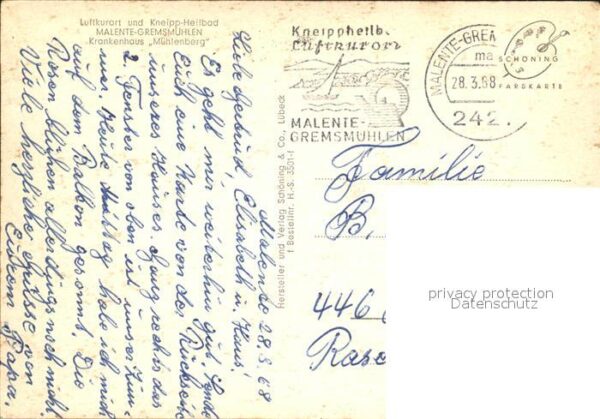 Luftkurort und Kneipp-Heilbad
MALENTE-GREMSMÜHLEN
Krankenhaus "Mühlenberg"
Malente 28.3.68
Liebe Gertrud, Elisabeth u. Hans!
Es geht mir weiterhin gut. Sende
Euch eine Karte von der Rückseite
unseres Hauses. Ganz rechts das
2. Fenster von oben ist unser Zim-
mer. Heute Mittag habe ich mich
auf dem Balkon gesonnt. Die
Rosen blühen allerdings noch nicht
Viele herzliche Grüsse von
Eurem Papa.
Hersteller und Verlag Schöning & Co., Lübeck
Bestellnr. H.-S. 3501-f
Kneippheilb.
Luftkurort
MALENTE-
GREMSMÜHLEN
MALENTE-GREM
ma
28.3.68
242.
SCHÖNING
FARBKARTE
Familie
B.
446
Ras
privacy protection
Datenschutz